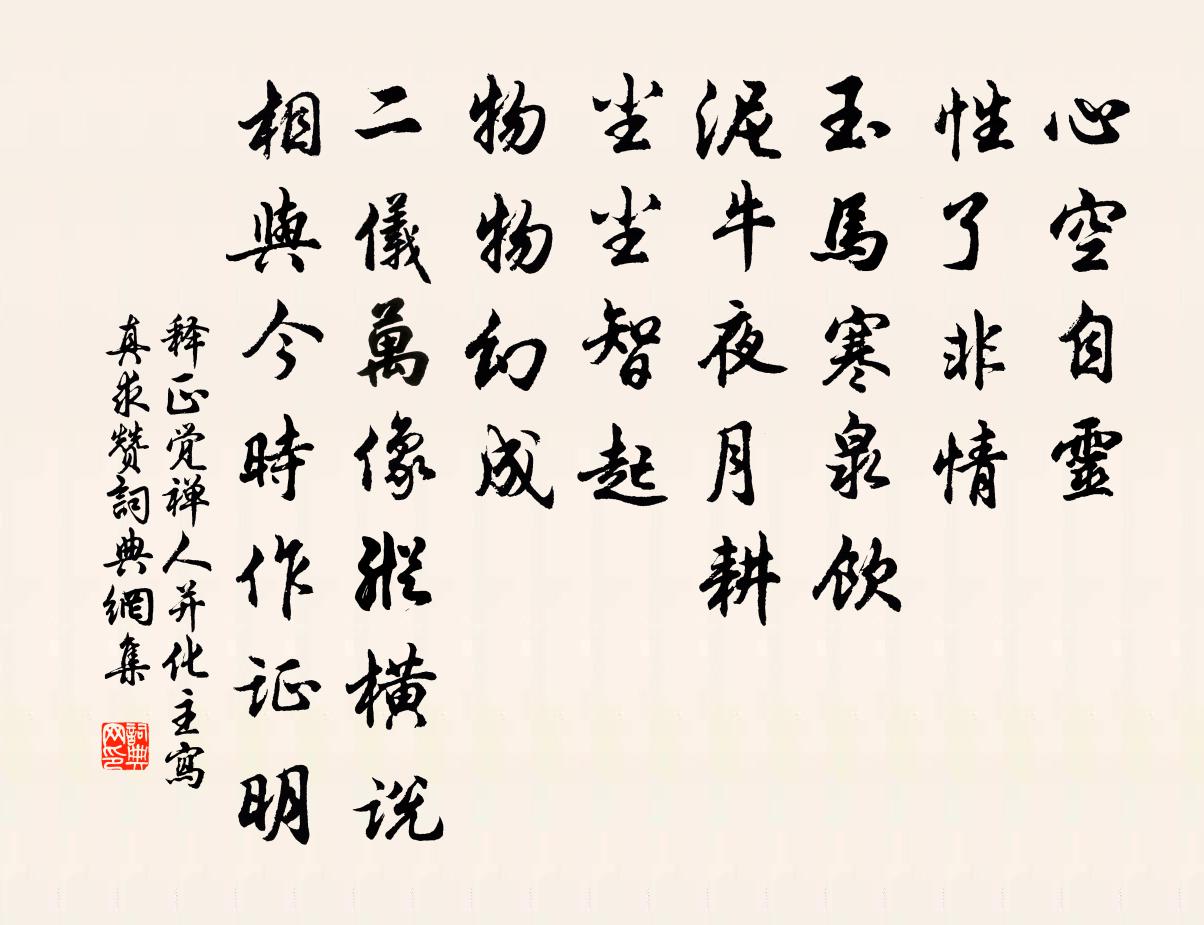 心空自靈
性了非情
玉馬寒泉飲
泥牛夜月耕
尘尘智起
物物幻成
二儀萬像縱橫説
相與今時作证明
释正觉禅人并化主寫
真求赞詞典網集
詞典网印